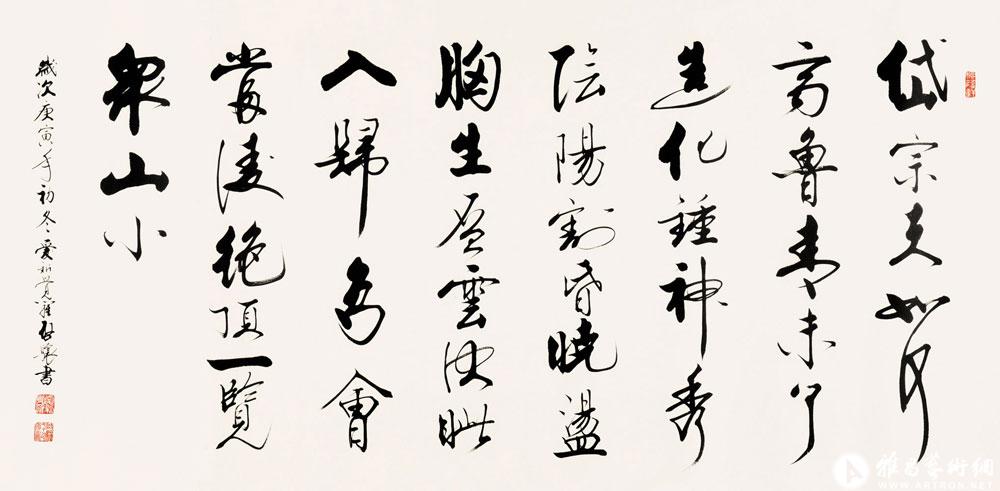 岱宗夫如何
齊魯青未了
造化鍾神秀
陰陽割昏曉盪
胸生層雲決眥
入歸鳥會
當凌絕頂一覽
眾山小
歲次庚寅年初冬愛新覺羅啟驤書
雅昌藝術網
WWW.ARTRON.NET